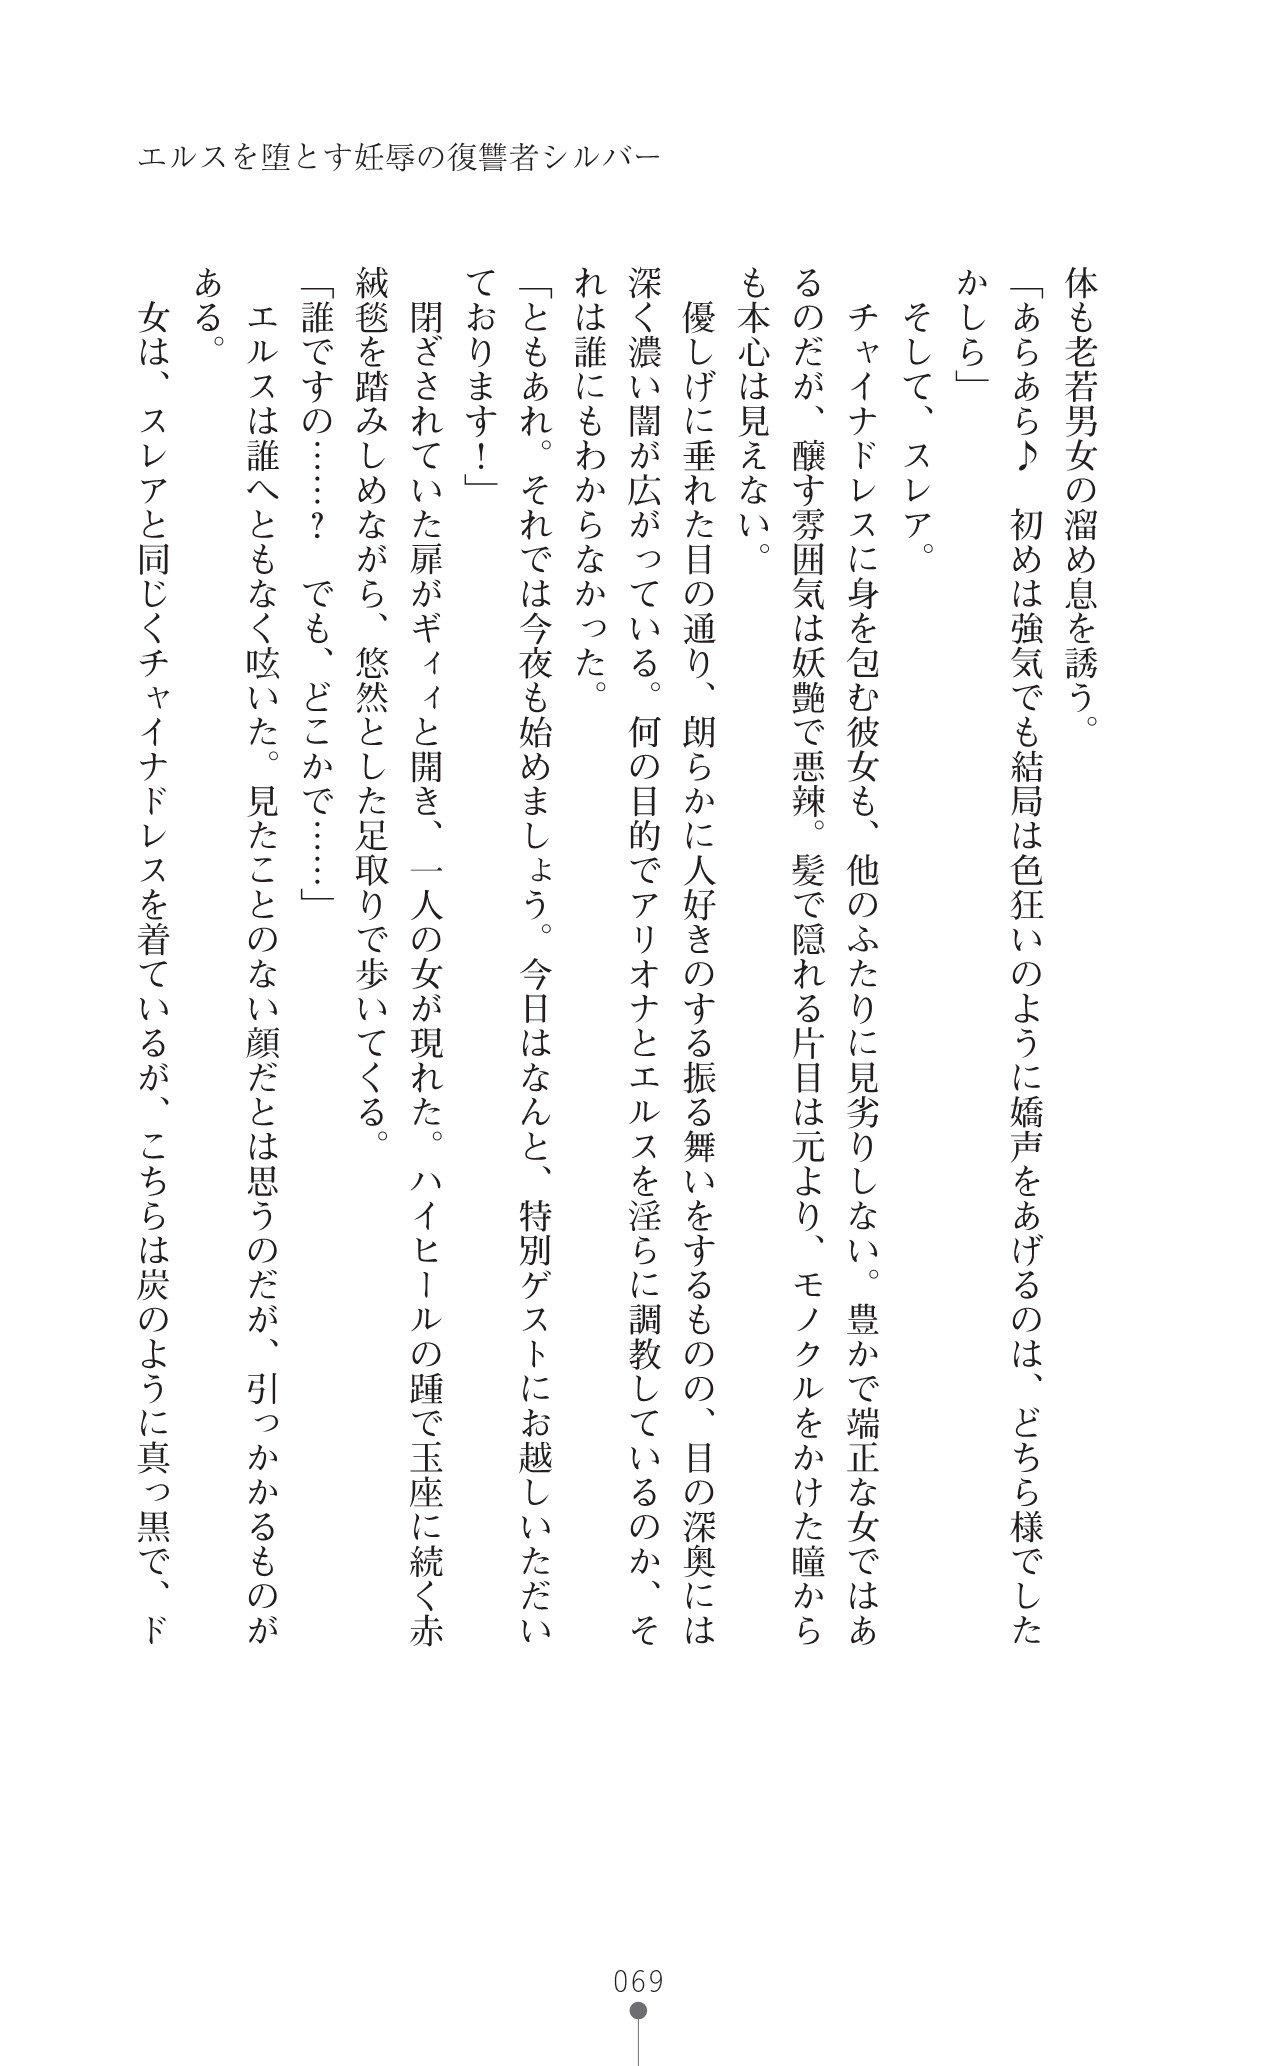 エルスを堕とす妊辱の復讐者シルバー
体も老若男女の溜め息を誘う。
「あらあら♪　初めは強気でも結局は色狂いのように嬌声をあげるのは、どちら様でした
かしら」
　そして、スレア。
　チャイナドレスに身を包む彼女も、他のふたりに見劣りしない。豊かで端正な女ではあ
るのだが、醸す雰囲気は妖艶で悪辣。髪で隠れる片目は元より、モノクルをかけた瞳から
も本心は見えない。
　優しげに垂れた目の通り、朗らかに人好きのする振る舞いをするものの、目の深奥には
深く濃い闇が広がっている。何の目的でアリオナとエルスを淫らに調教しているのか、そ
れは誰にもわからなかった。
「ともあれ。それでは今夜も始めましょう。今日はなんと、特別ゲストにお越しいただい
ております！」
　閉ざされていた扉がギィィと開き、一人の女が現れた。ハイヒールの踵で玉座に続く赤
絨毯を踏みしめながら、悠然とした足取りで歩いてくる。
「誰ですの……？　でも、どこかで……」
　エルスは誰へともなく呟いた。見たことのない顔だとは思うのだが、引っかかるものが
ある。
　女は、スレアと同じくチャイナドレスを着ているが、こちらは炭のように真っ黒で、ド
069